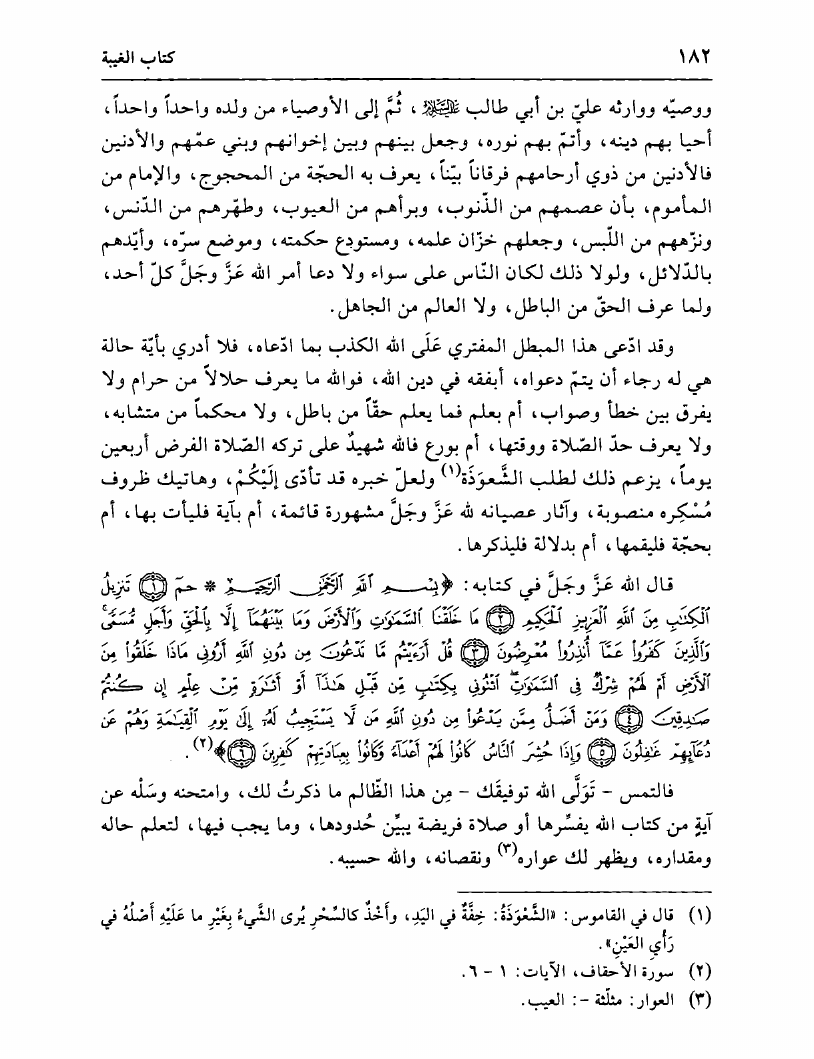 ١٨٢
كتاب الغيبة
ووصيّه ووارثه عليّ بن أبي طالب ﷺ، ثُمَّ إلى الأوصياء من ولده واحداً واحداً،
أحيا بهم دينه، وأتمّ بهم نوره، وجعل بينهم وبين إخوانهم وبني عمّهم والأدنين
فالأدنين من ذوي أرحامهم فرقاناً بيّناً، يعرف به الحجّة من المحجوج، والإمام من
المأموم، بأن عصمهم من الذّنوب، وبرأهم من العيوب، وطهّرهم من الدّنس،
ونزّههم من اللّبس، وجعلهم خزّان علمه، ومستودع حكمته، وموضع سرّه، وأيّدهم
بالدّلائل، ولولا ذلك لكان النّاس على سواء ولا دعا أمر الله عَزَّ وجَلَّ كلّ أحد،
ولما عرف الحقّ من الباطل، ولا العالم من الجاهل.
وقد ادّعى هذا المبطل المفتري عَلَى الله الكذب بما ادّعاه، فلا أدري بأيّة حالة
هي له رجاء أن يتمّ دعواه، أبفقه في دين الله، فوالله ما يعرف حلالاً من حرام ولا
يفرق بين خطأ وصواب، أم بعلم فما يعلم حقّاً من باطل، ولا محكماً من متشابه،
ولا يعرف حدّ الصّلاة ووقتها، أم بورع فالله شهيدٌ على تركه الصّلاة الفرض أربعين
يوماً، يزعم ذلك لطلب الشَّعوَذَة(١) ولعلّ خبره قد تأدّى إلَيْكُمْ، وهاتيك ظروف
مُسْكِره منصوبة، وآثار عصيانه لله عَزَّ وجَلَّ مشهورة قائمة، أم بآية فليأت بها، أم
بحجّة فليقمها، أم بدلالة فليذكرها.
قال الله عَزَّ وجَلَّ في كتابه: ﴿بِسْمِ ٱللَّهِ ٱلرَّحْمَٰنِ ٱلرَّحِيمِ * حمٓ ﴿١﴾ تَنزِيلُ
ٱلْكِتَٰبِ مِنَ ٱللَّهِ ٱلْعَزِيزِ ٱلْحَكِيمِ ﴿٢﴾ مَا خَلَقْنَا ٱلسَّمَٰوَٰتِ وَٱلْأَرْضَ وَمَا بَيْنَهُمَآ إِلَّا بِٱلْحَقِّ وَأَجَلٍ مُّسَمًّىۚ
وَٱلَّذِينَ كَفَرُوا۟ عَمَّآ أُنذِرُوا۟ مُعْرِضُونَ ﴿٣﴾ قُلْ أَرَءَيْتُم مَّا تَدْعُونَ مِن دُونِ ٱللَّهِ أَرُونِى مَاذَا خَلَقُوا۟ مِنَ
ٱلْأَرْضِ أَمْ لَهُمْ شِرْكٌ فِى ٱلسَّمَٰوَٰتِۖ ٱئْتُونِى بِكِتَٰبٍ مِّن قَبْلِ هَٰذَآ أَوْ أَثَٰرَةٍ مِّنْ عِلْمٍ إِن كُنتُمْ
صَٰدِقِينَ ﴿٤﴾ وَمَنْ أَضَلُّ مِمَّن يَدْعُوا۟ مِن دُونِ ٱللَّهِ مَن لَّا يَسْتَجِيبُ لَهُۥٓ إِلَىٰ يَوْمِ ٱلْقِيَٰمَةِ وَهُمْ عَن
دُعَآئِهِمْ غَٰفِلُونَ ﴿٥﴾ وَإِذَا حُشِرَ ٱلنَّاسُ كَانُوا۟ لَهُمْ أَعْدَآءً وَكَانُوا۟ بِعِبَادَتِهِمْ كَٰفِرِينَ ﴿٦﴾﴾(٢).
فالتمس - تَوَلَّى الله توفيقَك - مِن هذا الظّالم ما ذكرتُ لك، وامتحنه وسَلْه عن
آيةٍ من كتاب الله يفسِّرها أو صلاة فريضة يبيِّن حُدودها، وما يجب فيها، لتعلم حاله
ومقداره، ويظهر لك عواره(٣) ونقصانه، والله حسيبه.
(١) قال في القاموس: «الشَّعْوَذَةُ: خِفَّةٌ في اليَدِ، وأَخْذٌ كالسِّحْرِ يُرى الشَّيءُ بِغَيْرِ ما عَلَيْهِ أَصْلُهُ في
رَأيِ العَيْنِ».
(٢) سورة الأحقاف، الآيات: ١ - ٦.
(٣) العوار: مثلّثة -: العيب.